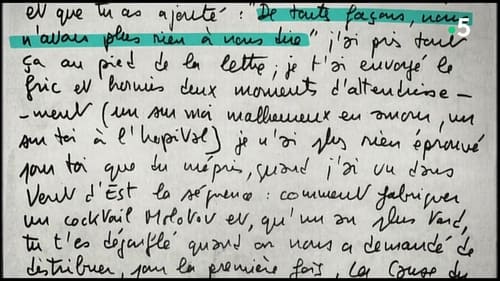 et que tu as ajouté : "De toute façon, nous
n'avons plus rien à nous dire" j'ai pris tout
ça au pied de la lettre ; je t'ai envoyé le
fric et hormis deux moments d'attendrisse-
-ment (un sur moi malheureux en amour, un
sur toi à l'hôpital) je n'ai plus rien éprouvé
pour toi que du mépris, quand j'ai vu dans
Vent d'Est la séquence : comment fabriquer
un cocktail Molotov et, qu'un an plus tard,
tu t'es dégonflé quand on nous a demandé de
distribuer, pour la première fois, La Cause du
5